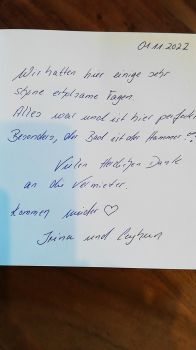 01.11.2022
Wir hatten hier einige sehr
schöne erholsame Tagen
Alles war und ist hier perfekt
Besonders, das Bad ist der Hammer
Vielen Herzlichen Dank
an die Vermieter.
Kommen wieder ♡
Irina und